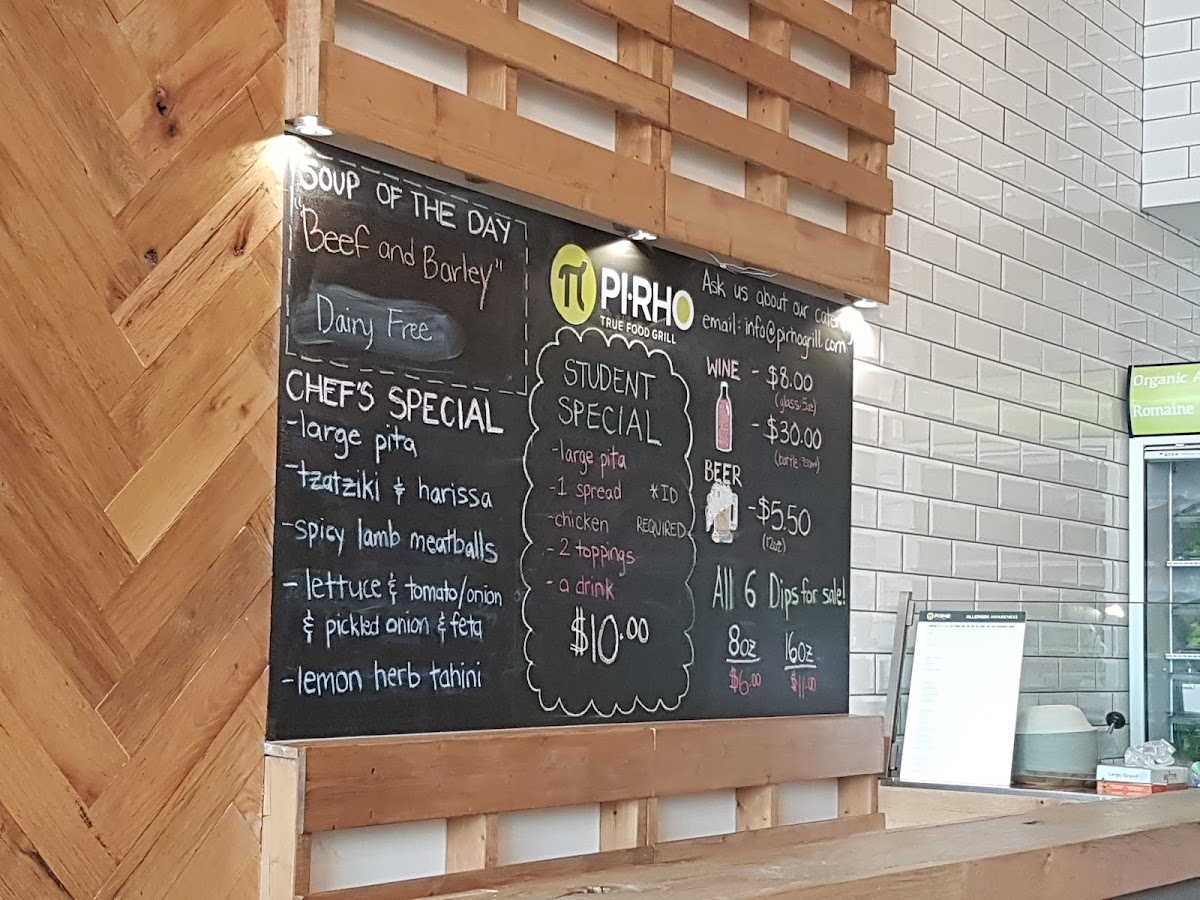 SOUP OF THE DAY
"Beef and Barley"
Dairy Free
CHEF'S SPECIAL
-large pita
-tzatziki & harissa
-spicy lamb meatballs
- lettuce & tomato/onion
& pickled onion & feta
-lemon herb tahini
π PI·RHO
TRUE FOOD GRILL
STUDENT
SPECIAL
-large pita
-1 spread
-chicken
-2 toppings
-a drink
*ID
REQUIRED
$10.00
Ask us about our
email: info@pirhogrill.com
WINE - $8.00
(glass: 5oz)
- $30.00
(bottle: 750ml)
BEER
-$5.50
(12oz)
All 6 Dips for sale!
8oz 16oz
$6.00 $11.00
Organic
Romaine
PI·RHO ALLERGEN AWARENESS